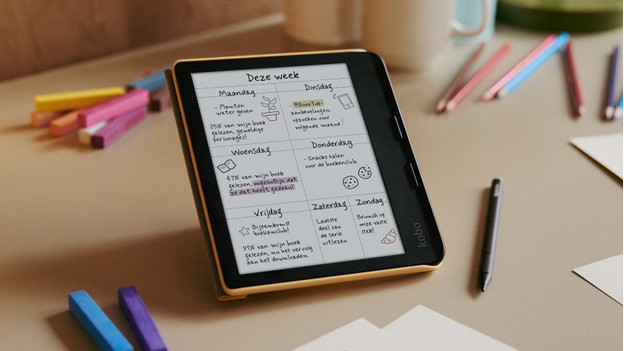 Deze week
Maandag
- Planten
water geven
25% van mijn boek
gelezen, geweldige
personages!
Dinsdag
#BookTok-
aanbevelingen
opzoeken voor
volgende maand!
Woensdag
47% van mijn boek
gelezen, ongelooflijk dat
ze dat heeft gedaan!
Donderdag
- Snacks halen
voor de boekenclub
Vrijdag
Bijeenkomst
boekenclub!
99% van mijn boek
gelezen, nu het vervolg
aan het downloaden
Zaterdag
Laatste
deel van
de serie
uitlezen
Zondag
Brunch op
mijn vaste
stek!
kobo